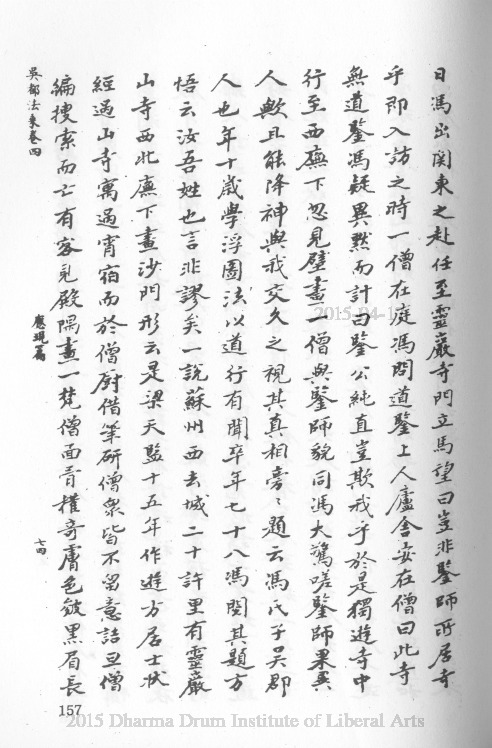 日馮出関東之赴任至靈巖寺門立馬望曰豈非鑒師所居寺
乎即入訪之時一僧在庭馮問道鑒上人廬舍安在僧曰此寺
無道鑒馮疑異黙而計曰鑒公純直豈欺我乎於是獨遊寺中
行至西廡下忽見壁畫一僧與鑒師貌同馮大驚嗟鑒師果異
人歟且能降神與我交久之視其真相旁〻題云馮氏子吳郡
人也年十歲學浮圖法以道行有聞卒年七十八馮閱其題方
悟云汝吾姓也言非謬矣一說蘇州西去城二十許里有靈巖
山寺西北廡下畫沙門形云是梁天監十五年作遊方居士狀
經過山寺寓過宵宿而於僧厨借筆硯僧衆皆不留意詰旦僧
徧搜索而亡有客見殿隅畫一梵僧面骨權奇膚色皴黑眉長
吳都法乘卷四
應現篇
七四
157
2015-04-1
2015 Dharma Drum Institute of Liberal Arts